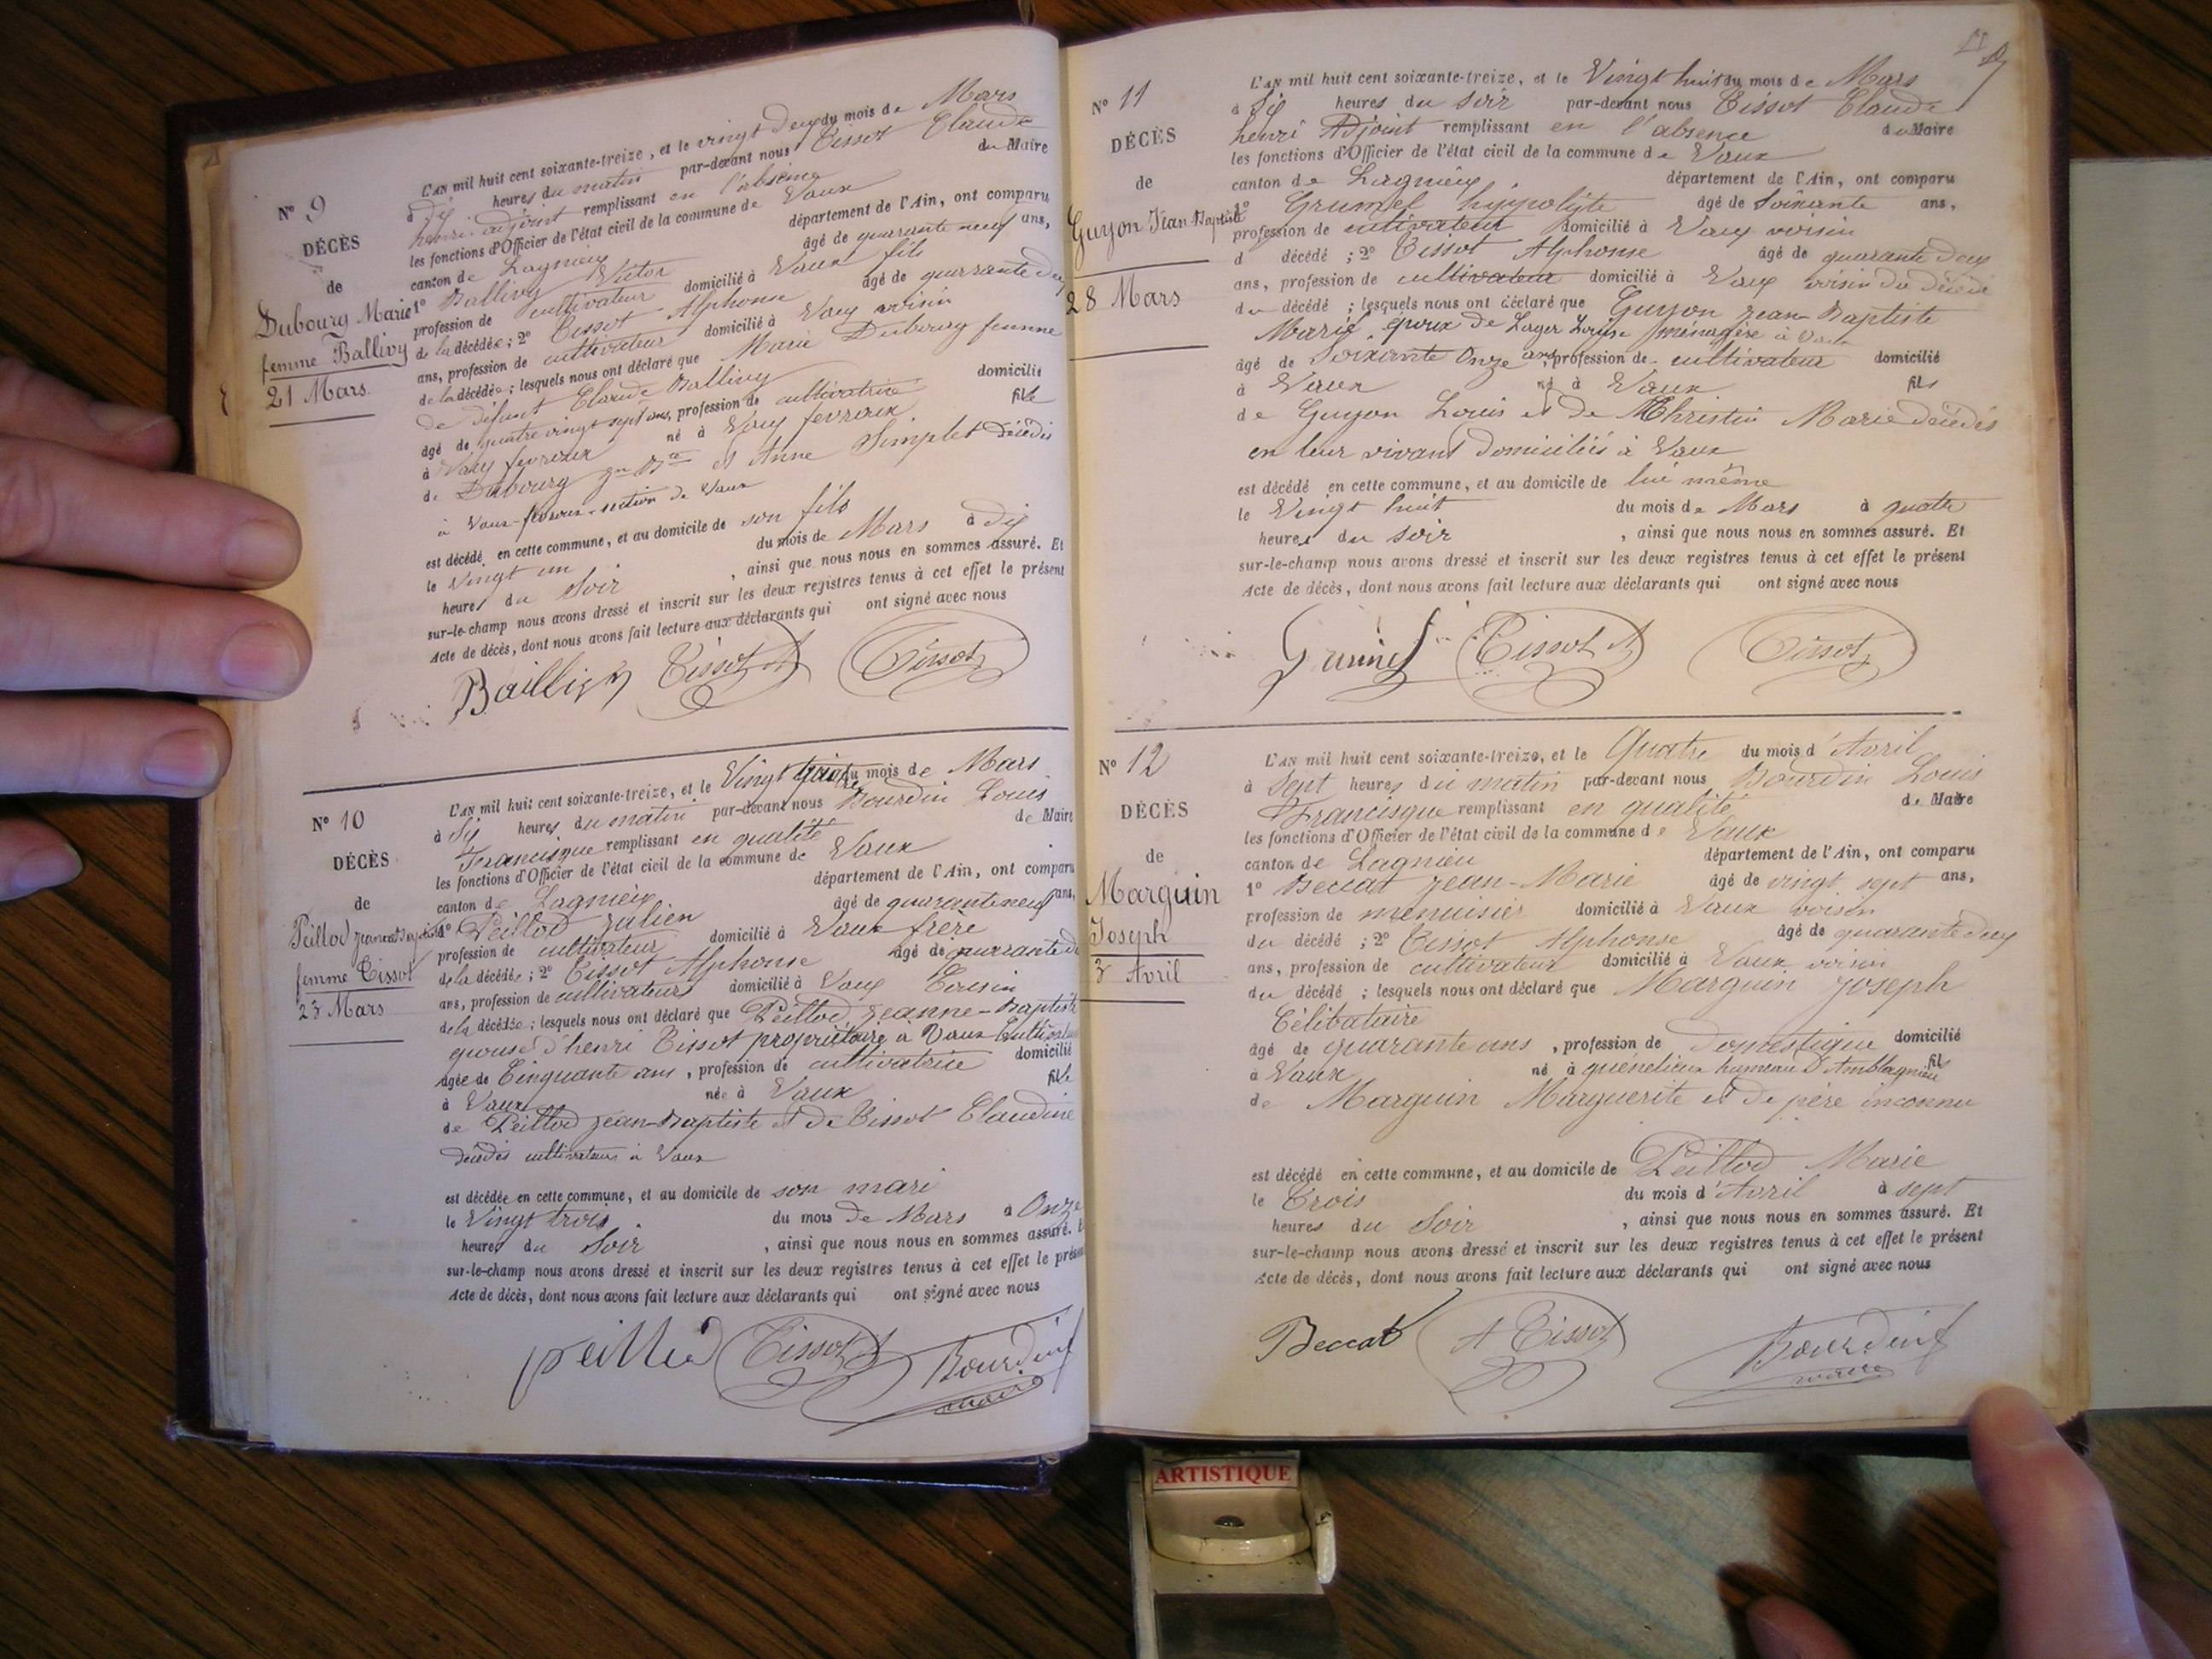 N° 9
DÉCÈS
de
Dubourg Marie
femme Ballivy
21 Mars.
L'AN mil huit cent soixante-treize, et le vingt deux du mois de Mars
à dix heures du matin par-devant nous Tissot Claude
henri adjoint remplissant en l'absence du Maire
les fonctions d'Officier de l'état civil de la commune de Vaux
canton de Lagnieu département de l'Ain, ont comparu
1° Ballivy Victor âgé de quarante neuf ans,
profession de cultivateur domicilié à Vaux fils
de la décédée ; 2° Tissot Alphonse âgé de quarante deux
ans, profession de cultivateur domicilié à Vaux voisin
de la décédée ; lesquels nous ont déclaré que Marie Dubourg femme
de défunt Claude Ballivy
âgé de quatre vingt sept ans, profession de cultivatrice domicilié
à Vaux fevroux né à Vaux fevroux fille
de Dubourg Jn Bte et Anne Simplet décédés
à Vaux-fevroux section de Vaux
est décédé en cette commune, et au domicile de son fils
le Vingt un du mois de Mars à dix
heures du Soir , ainsi que nous nous en sommes assuré. Et
sur-le-champ nous avons dressé et inscrit sur les deux registres tenus à cet effet le présent
Acte de décès, dont nous avons fait lecture aux déclarants qui ont signé avec nous
Tissot A Tissot
N° 10
DÉCÈS
de
Peillod Jeanne Baptiste
femme Tissot
23 Mars
L'AN mil huit cent soixante-treize, et le Vingt quatre du mois de Mars
à dix heures du matin par-devant nous Bourdin Louis
Francisque remplissant en qualité de Maire
les fonctions d'Officier de l'état civil de la commune de Vaux
canton de Lagnieu département de l'Ain, ont comparu
1° Peillod Julien âgé de quarante neuf ans,
profession de cultivateur domicilié à Vaux frère
de la décédée ; 2° Tissot Alphonse âgé de quarante
ans, profession de cultivateurs domicilié à Vaux Cousin
de la décédée ; lesquels nous ont déclaré que Peillod Jeanne-Baptiste
epouse d'henri Tissot propriétaire à Vaux
âgée de Cinquante ans , profession de cultivatrice domicilié
à Vaux née à Vaux fille
de Peillod Jean-Baptiste et de Tissot Claudine
décédés cultivateurs à Vaux
est décédée en cette commune, et au domicile de son mari
le Vingt trois du mois de Mars à Onze
heures du Soir , ainsi que nous nous en sommes assuré. Et
sur-le-champ nous avons dressé et inscrit sur les deux registres tenus à cet effet le présent
Acte de décès, dont nous avons fait lecture aux déclarants qui ont signé avec nous
peillod Tissot A Bourdin f
maire
N° 11
DÉCÈS
de
Guyon Jean Baptiste
28 Mars
L'AN mil huit cent soixante-treize, et le Vingt huit du mois de Mars
à Six heures du soir par-devant nous Tissot Claude
henri Adjoint remplissant en l'absence du Maire
les fonctions d'Officier de l'état civil de la commune de Vaux
canton de Lagnieu département de l'Ain, ont comparu
1° Grumel hippolyte âgé de soixante ans,
profession de cultivateur domicilié à Vaux voisin
d décédé ; 2° Tissot Alphonse âgé de quarante deux
ans, profession de cultivateur domicilié à Vaux voisin du décédé
du décédé ; lesquels nous ont déclaré que Guyon Jean Baptiste
Marié, époux de Layer Louise ménagère à Vaux
âgé de Soixante Onze ans, profession de cultivateur domicilié
à Vaux né à Vaux fils
de Guyon Louis et de Christin Marie décédés
en leur vivant domiciliés à Vaux
est décédé en cette commune, et au domicile de lui même
le Vingt huit du mois de Mars à quatre
heures du soir , ainsi que nous nous en sommes assuré. Et
sur-le-champ nous avons dressé et inscrit sur les deux registres tenus à cet effet le présent
Acte de décès, dont nous avons fait lecture aux déclarants qui ont signé avec nous
Grumel Tissot A Tissot
N° 12
DÉCÈS
de
Marguin
Joseph
3 Avril
L'AN mil huit cent soixante-treize, et le Quatre du mois d'Avril
à Sept heures du matin par-devant nous Bourdin Louis
Francisque remplissant en qualité de Maire
les fonctions d'Officier de l'état civil de la commune de Vaux
canton de Lagnieu département de l'Ain, ont comparu
1° Beccat Jean-Marie âgé de vingt sept ans,
profession de menuisier domicilié à Vaux voisin
du décédé ; 2° Tissot Alphonse âgé de quarante deux
ans, profession de cultivateur domicilié à Vaux voisin
du décédé ; lesquels nous ont déclaré que Marguin Joseph
Célibataire
âgé de quarante ans , profession de Domestique domicilié
à Vaux né à quénelieux hameau d'Amblagnieu fils
de Marguin Marguerite et de père inconnu
est décédé en cette commune, et au domicile de Peillod Marie
le Trois du mois d'Avril à sept
heures du Soir , ainsi que nous nous en sommes assuré. Et
sur-le-champ nous avons dressé et inscrit sur les deux registres tenus à cet effet le présent
Acte de décès, dont nous avons fait lecture aux déclarants qui ont signé avec nous
Beccat A Tissot Bourdin f
maire
ARTISTIQUE